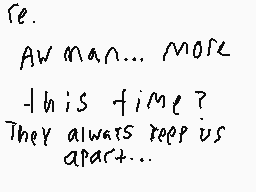 re.
Aw man... more
this time?
They always keep us
apart...